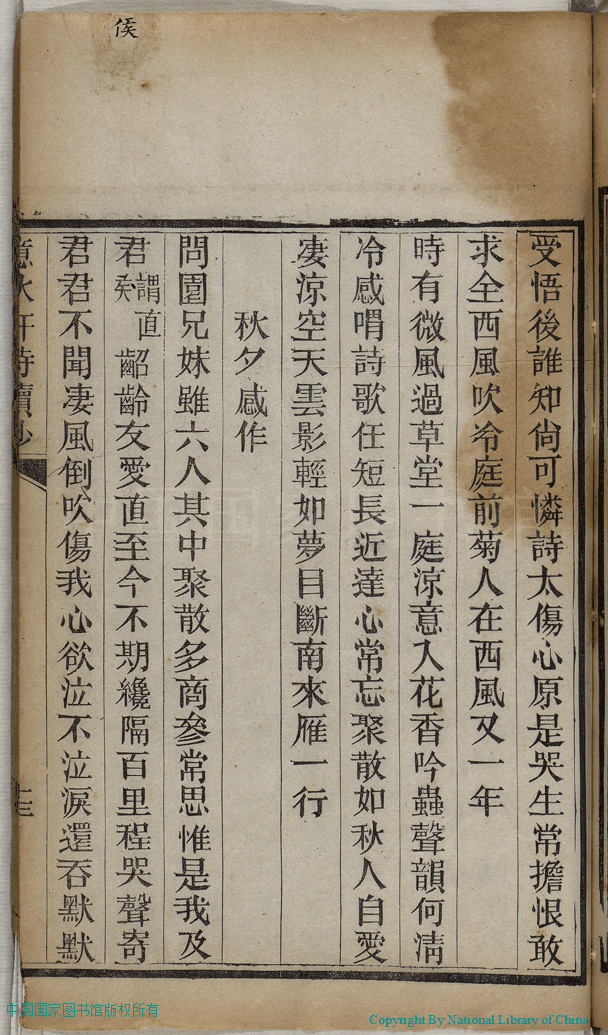 矦
受悟後誰知尙可憐詩太傷心原是哭生常擔恨敢
求全西風吹冷庭前菊人在西風又一年
時有微風過草堂一庭涼意入花香吟蟲聲韻何淸
冷感喟詩歌任短長近達心常忘聚散如秋人自愛
凄涼空天雲影輕如夢目斷南來雁一行
秋夕感作
問園兄妹雖六人其中聚散多商參常思惟是我及
君謂直矦齠齡友愛直至今不期纔隔百里程哭聲寄
君君不聞凄風倒吹傷我心欲泣不泣淚還吞默默
意水軒詩
十三
中国国家图书馆版权所有
Copyright By National Library of China